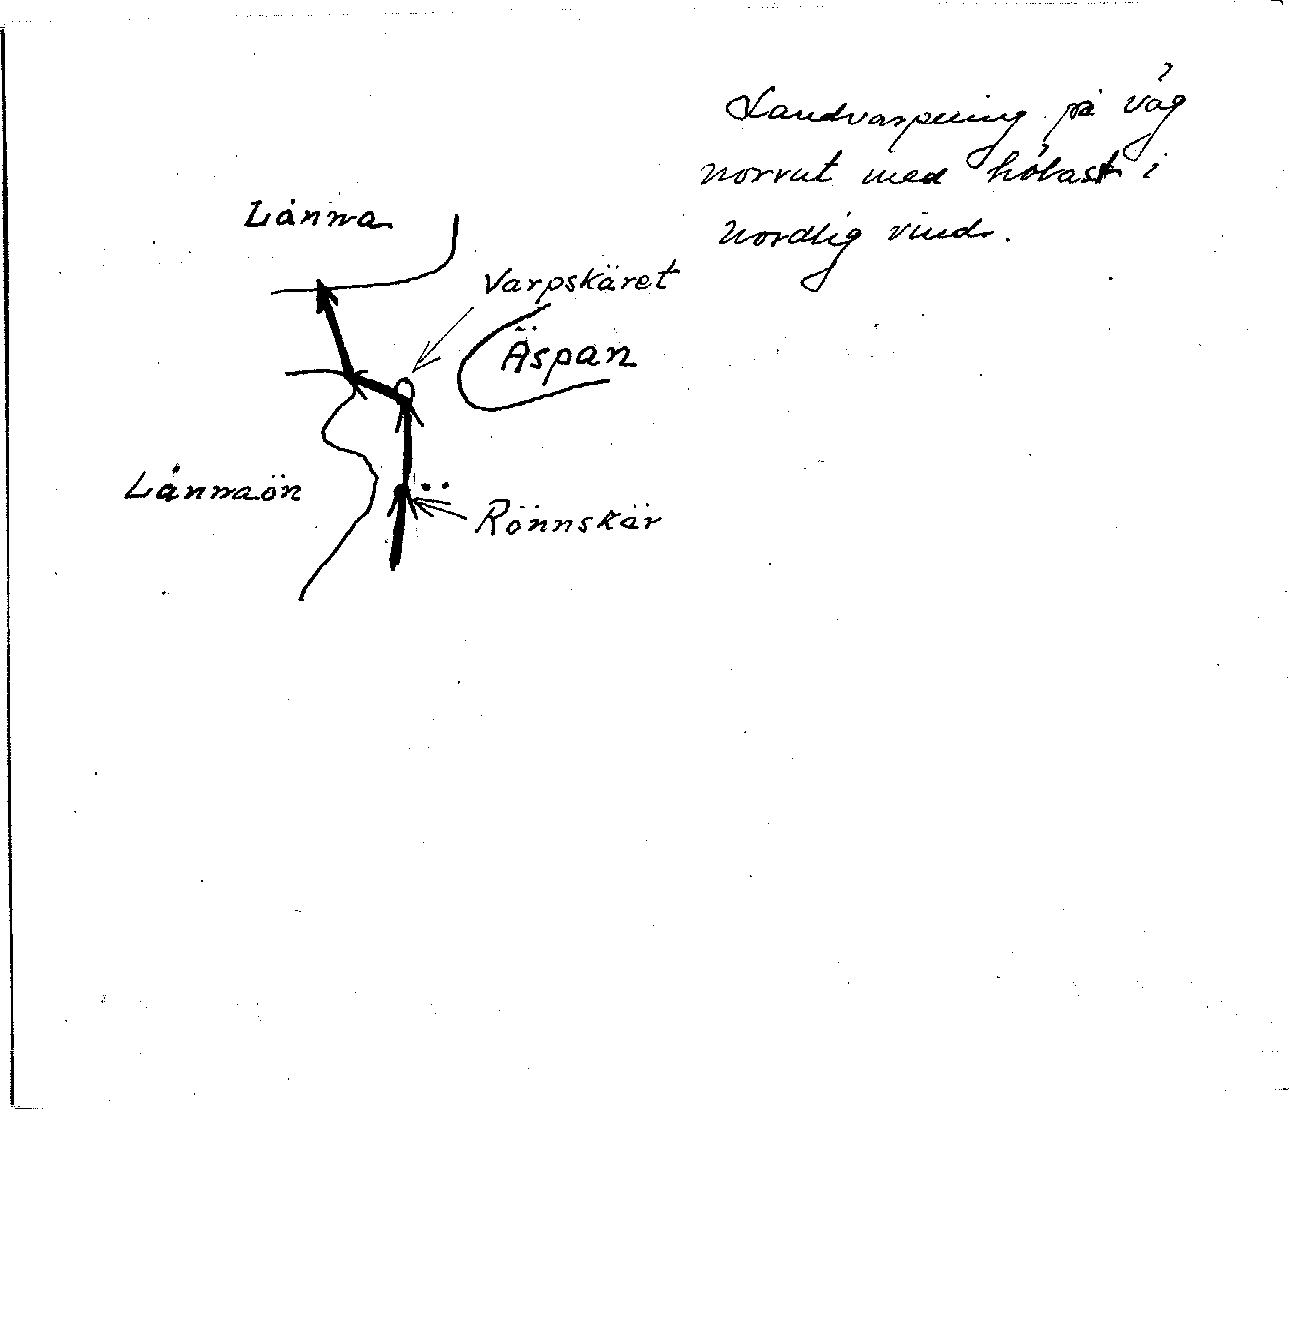 Landvarpning på väg
norrut med hölast i
nordlig vind.
Länna
Varpskäret
Äspan
Lännaön
Rönnskär